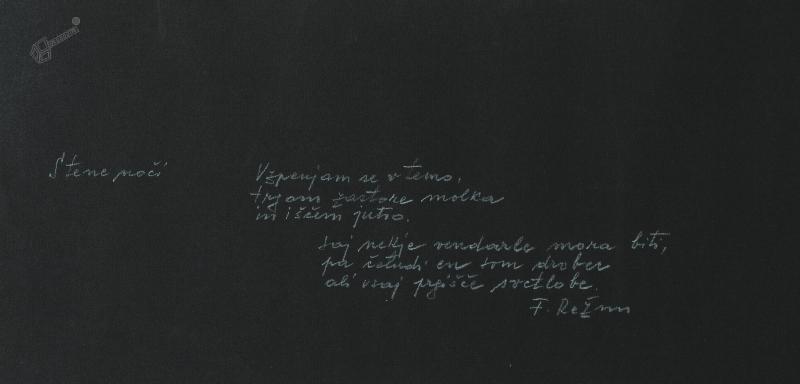 Stene noči
Vzpenjam se v temo,
trgam zastore molka
in iščem jutro.
saj nekje vendarle mora biti,
pa četudi en sam drobec
ali vsaj prgišče svetlobe.
F. Režun